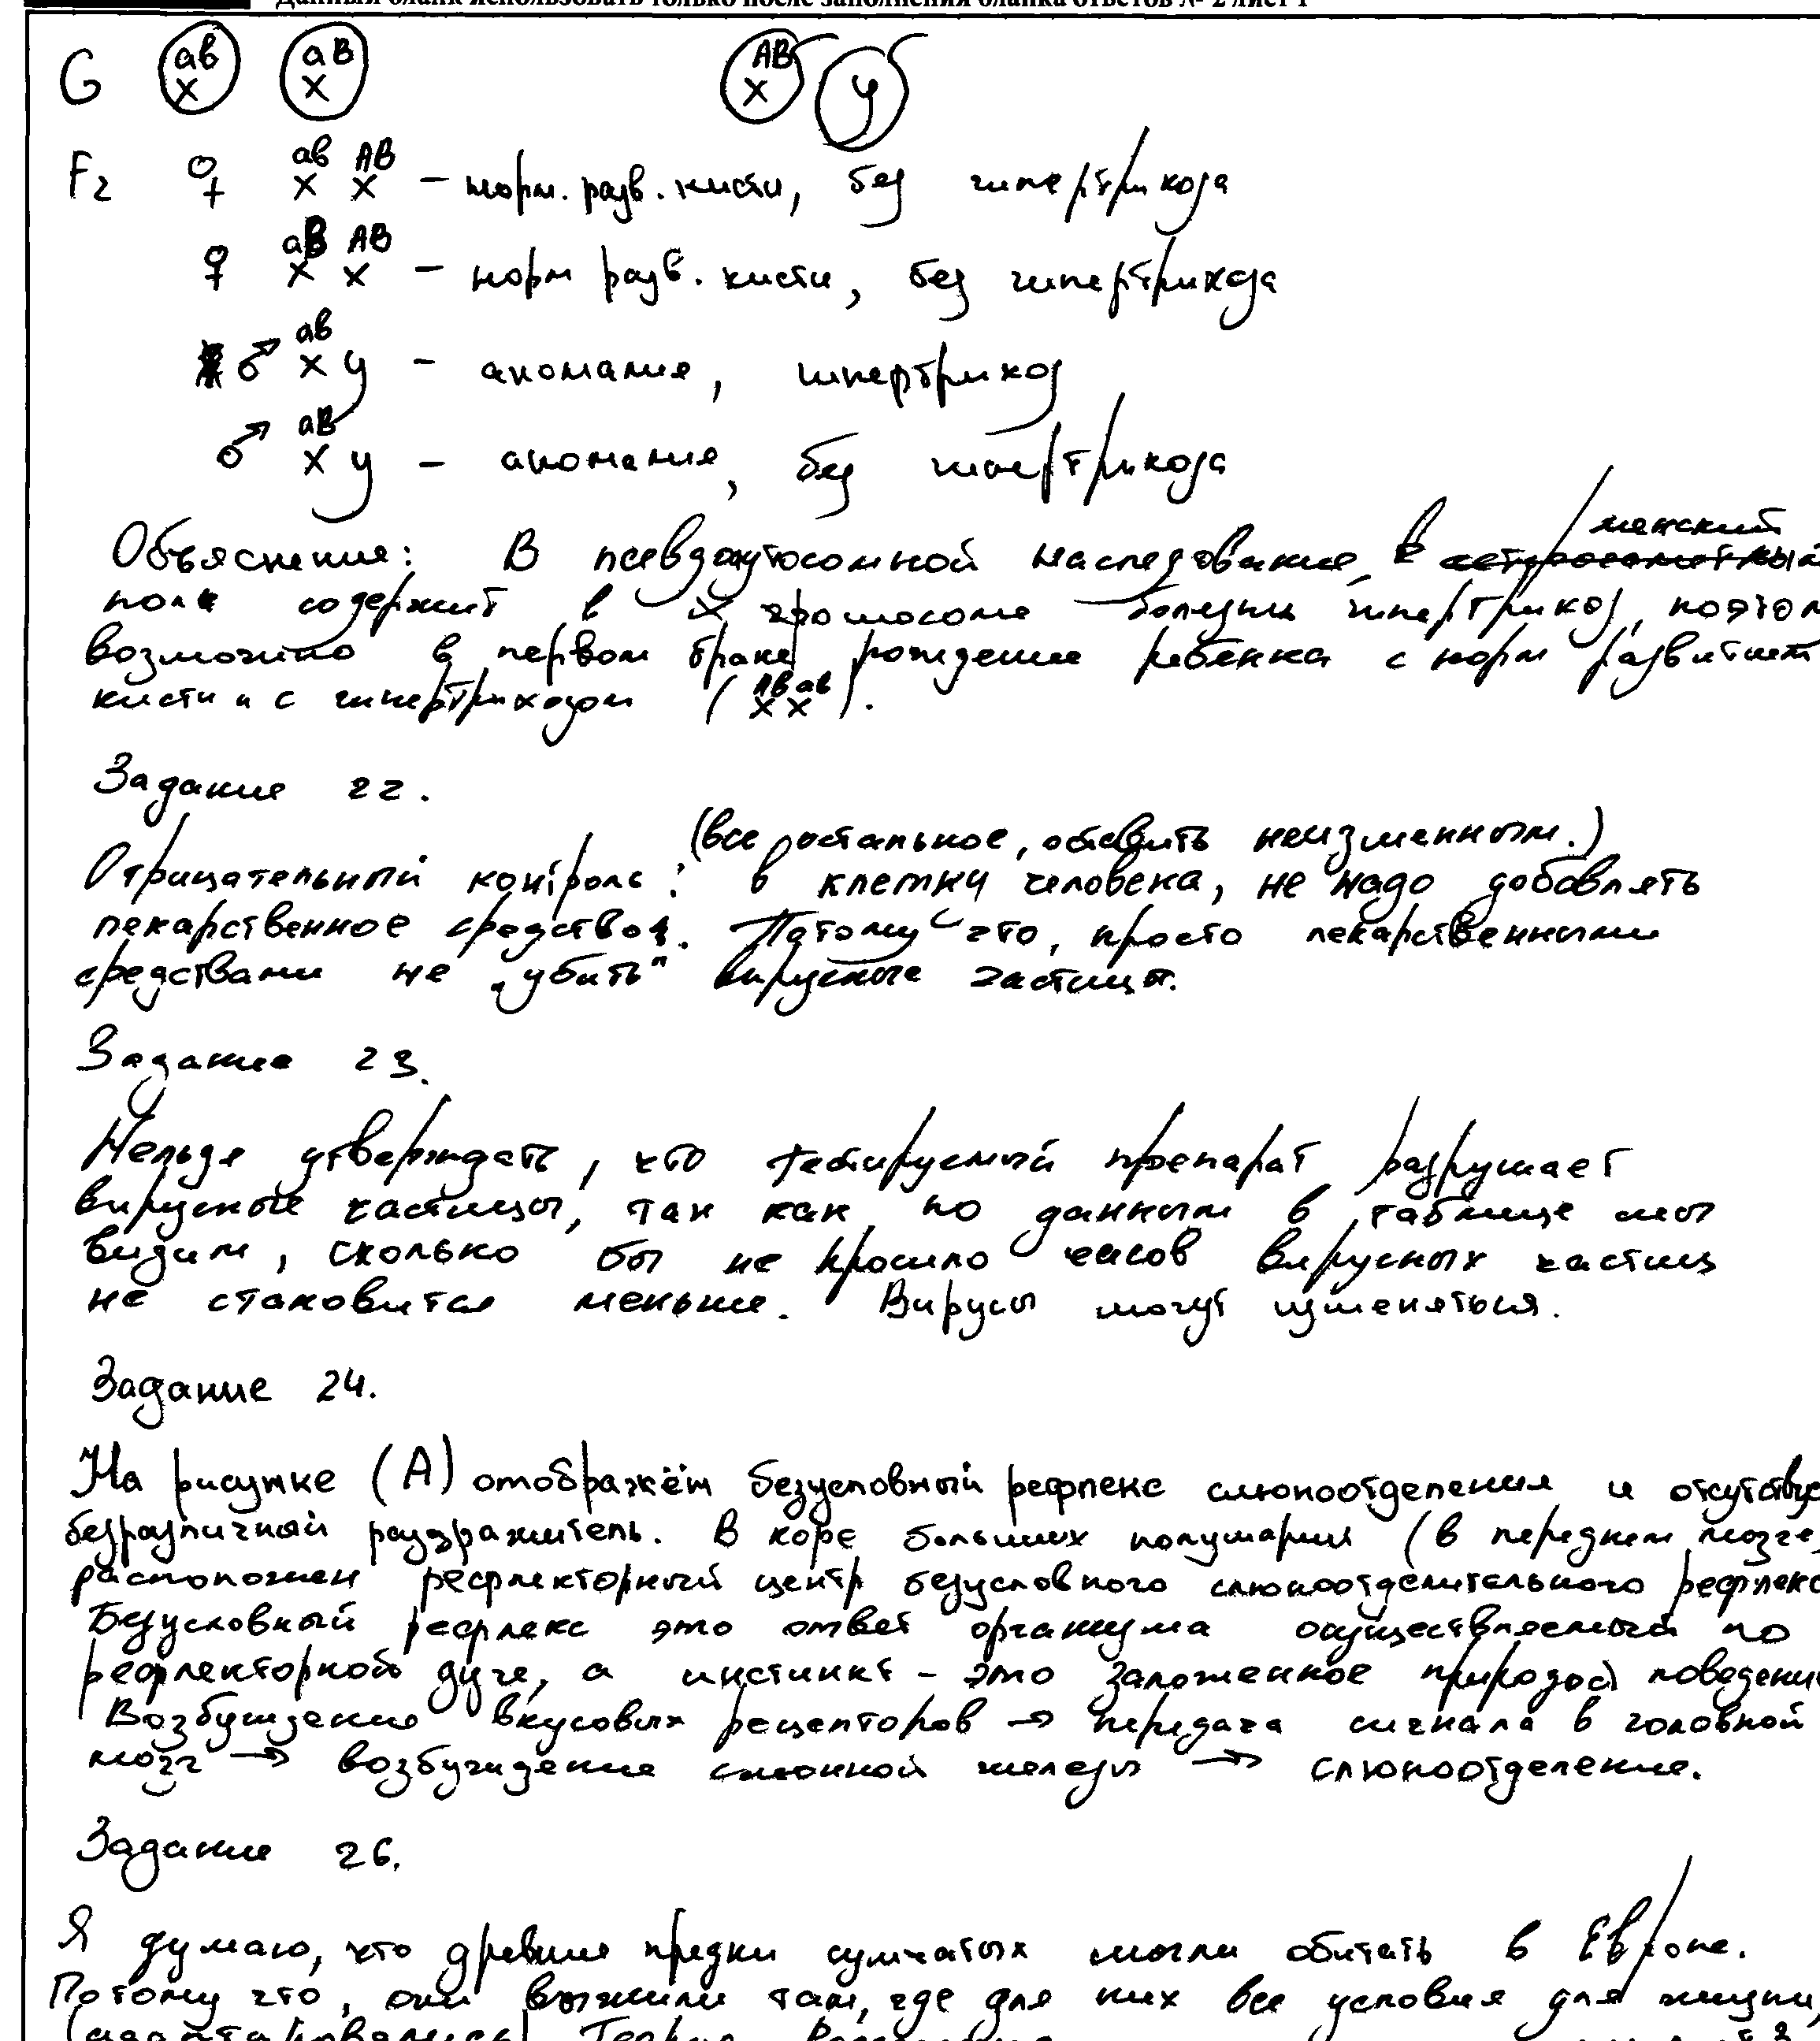 Данный бланк использовать только после заполнения бланка ответов № 2 лист 1
G ав X аВ X АВ X У
F2 ♀ Xав XАВ – норм. разв. кисти, без гипертрихоза
♀ XаВ XАВ – норм разв. кисти, без гипертрихоза
♂ Xав У – аномалия, гипертрихоз
♂ XаВ У – аномалия, без гипертрихоза
мужской
Объяснение: В псевдоаутосомной наследование, в
пола содержит в х хромосоме болезни гипертрихоз, поэтом
возможно в первом браке рождение ребенка с норм развитием
кисти и с гипертрихозом (XАВ Xав).
Задание 22.
(все остальное, оставить неизменным.)
Отрицательный контроль: в клетки человека, не надо добавлять
лекарственное средство. Потому что, просто лекарственными
средствами не „убить" вирусные частицы.
Задание 23.
Нельзя утверждать, что тестируемый препарат разрушает
вирусные частицы, так как, по данным в таблице мы
видим, сколько бы не прошло часов вирусных частиц
не становится меньше. Вирусы могут изменяться.
Задание 24.
На рисунке (А) отображён безусловный рефлекс слюноотделения и отсутствуе
безразличный раздражитель. В коре больших полушарий (в переднем мозге)
расположен рефлекторный центр безусловного слюноотделительного рефлекс
Безусловный рефлекс это ответ организма осуществляемый по
рефлекторной дуге, а инстинкт – это заложенное природой поведени
Возбуждение вкусовых рецепторов → передача сигнала в головной
мозг → возбуждение слюнной железы → слюноотделение.
Задание 26.
Я думаю, что древние предки сумчатых могли обитать в Европе.
Потому что, они выжили там, где для них все условия для жизни,